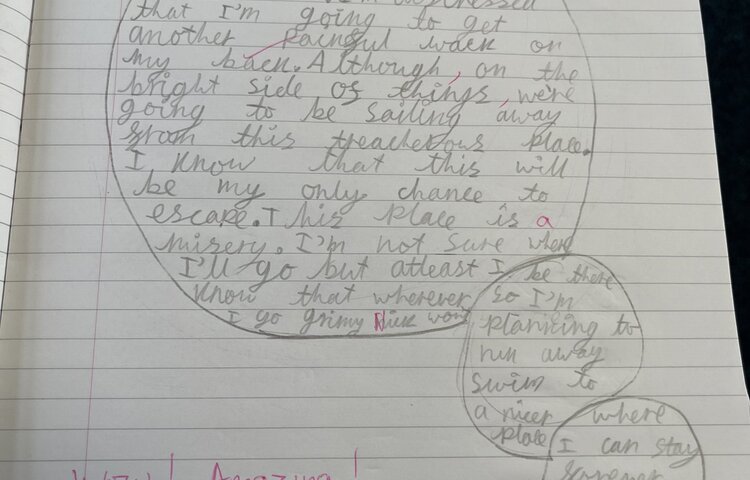 that I'm going to get
another painful wack on
my back. Although, on the
bright side of things, we're
going to be sailing away
from this treacherous place.
I know that this will
be my only chance to
escape. This place is a
misery. I'm not sure where
I'll go but atleast I
know that wherever
I go grimy Nick won't
be there
so I'm
planning to
run away
swim to
a nicer
place
where
I can stay
forever
Wow! Amazing!